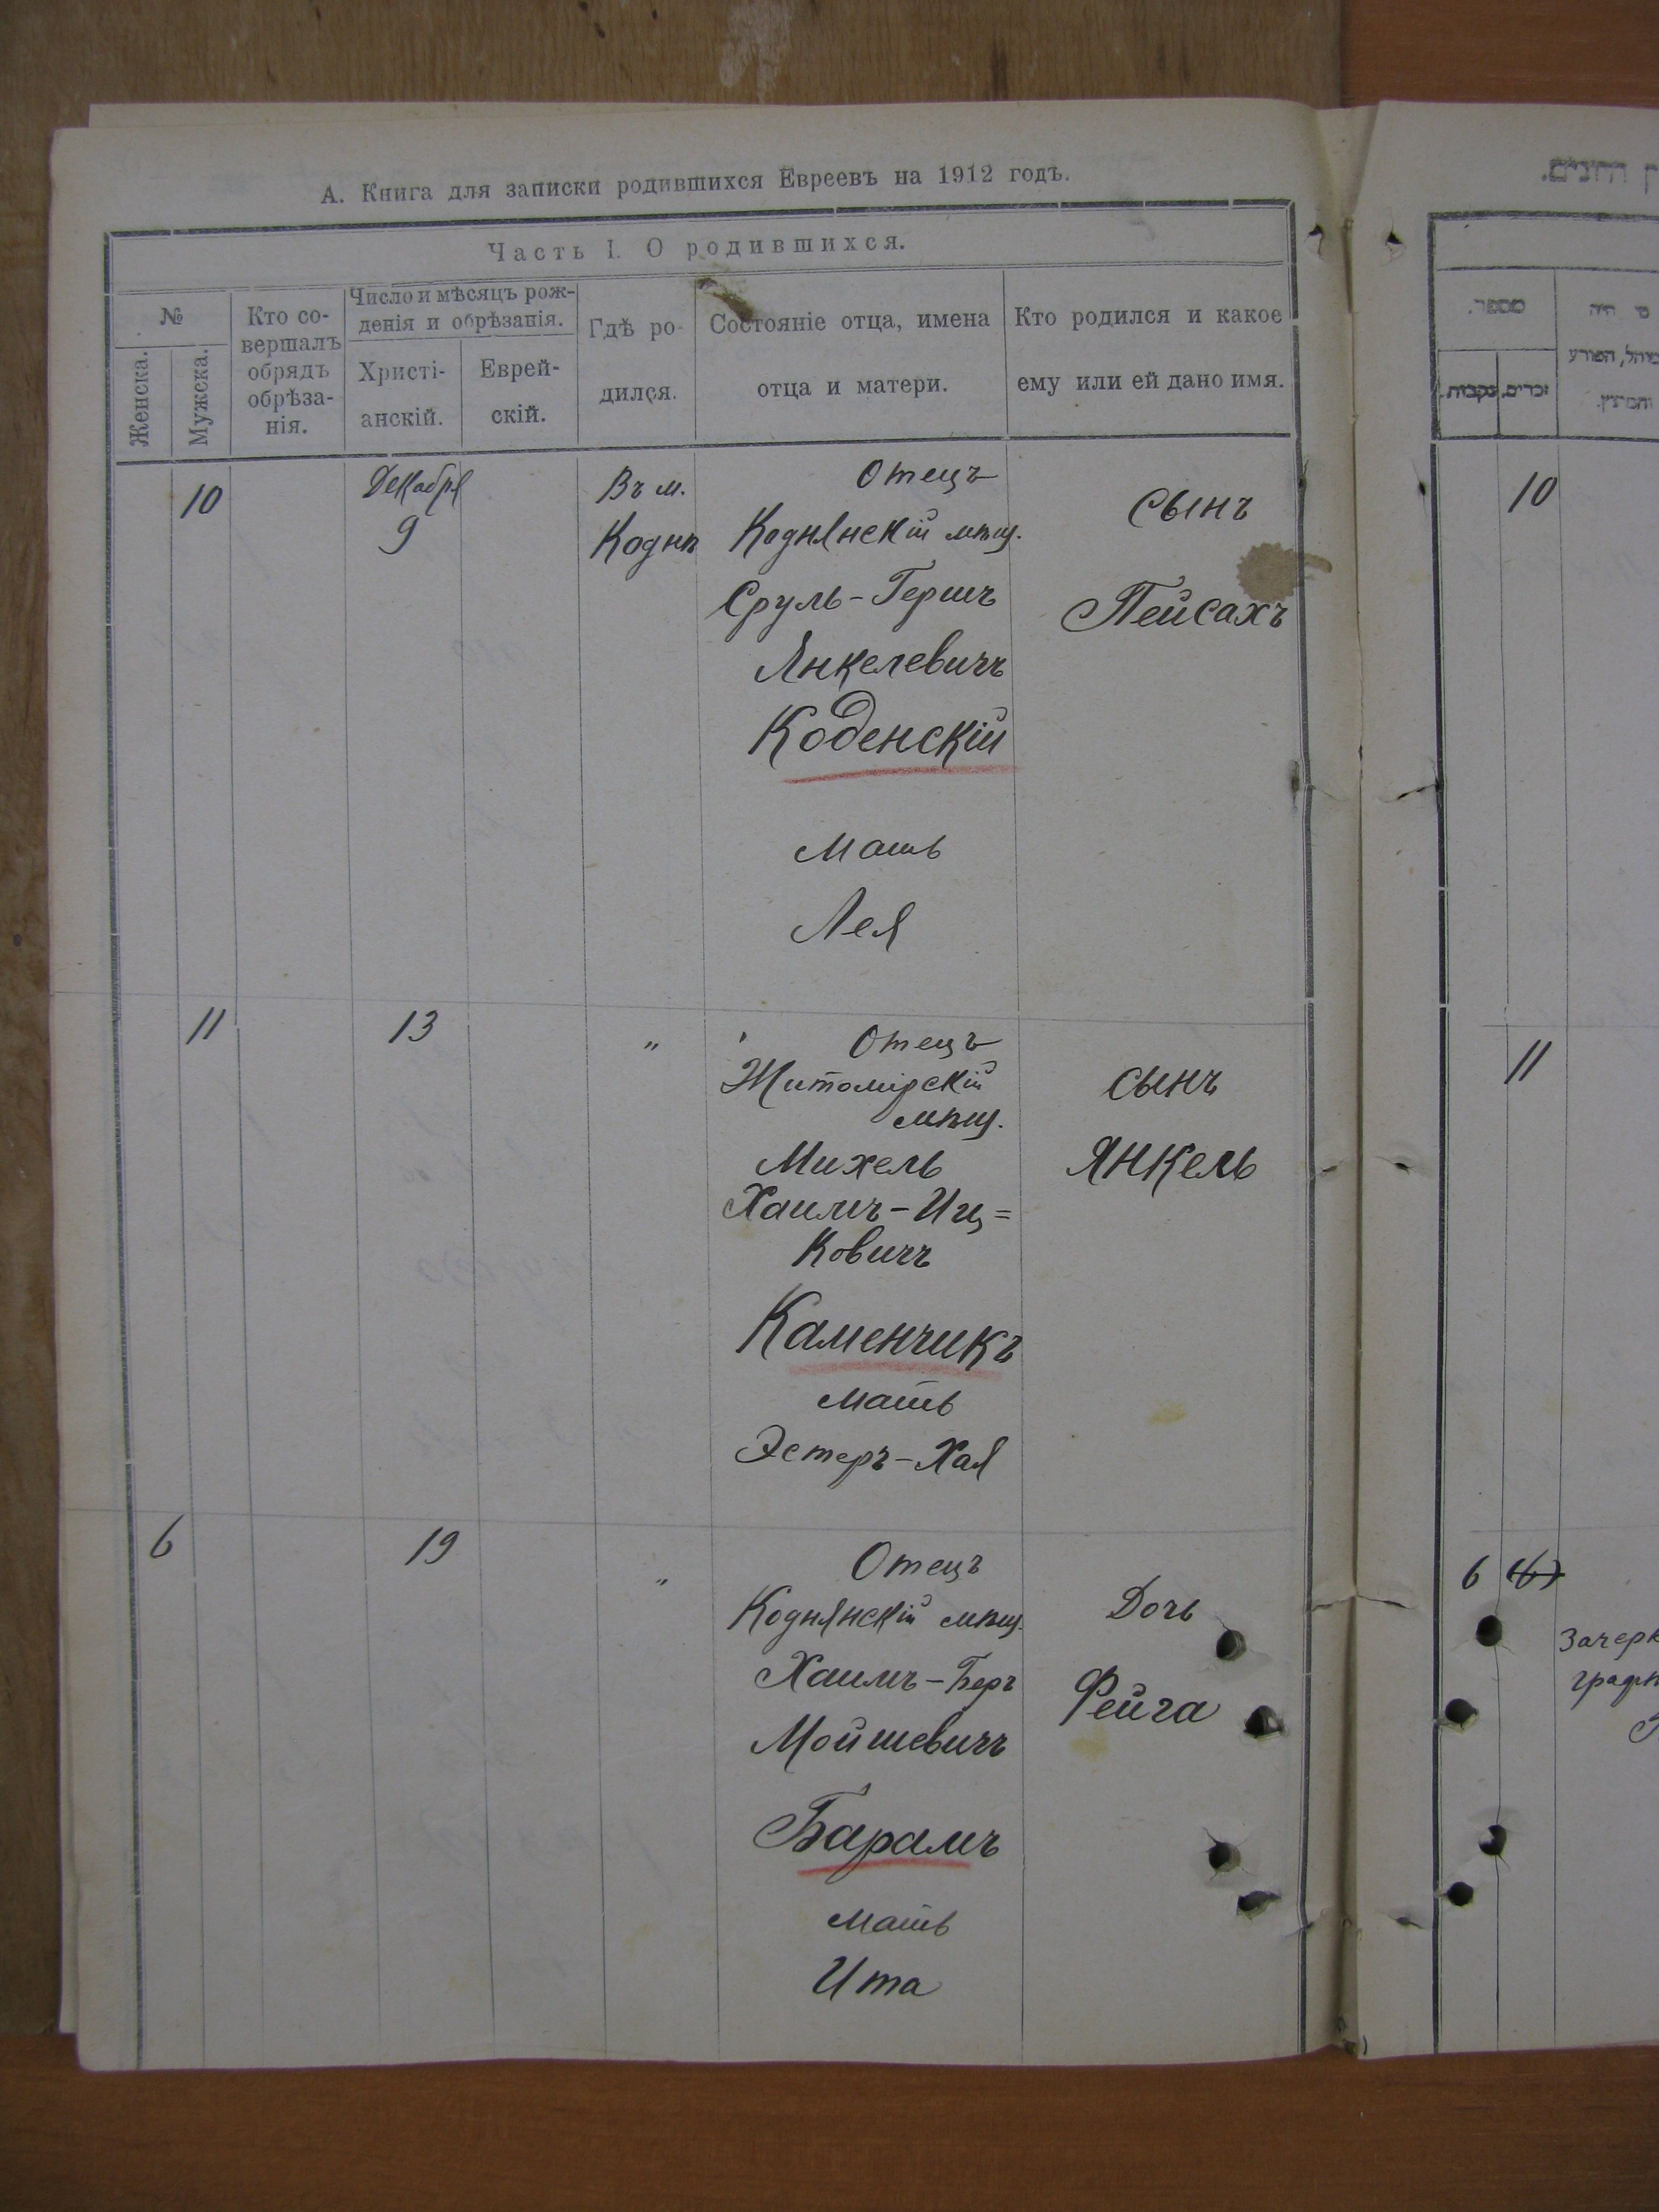 А. Книга для записки родившихся Евреевъ на 1912 годъ.
Часть I. О родившихся.
№
Женска.
Мужска.
Кто со-
вершалъ
обрядъ
обрѣза-
нія.
Число и мѣсяцъ рож-
денія и обрѣзанія.
Христі-
анскій.
Еврей-
скій.
Гдѣ ро-
дился.
Состояніе отца, имена
отца и матери.
Кто родился и какое
ему или ей дано имя.
10
Декабря
9
Въ м.
Коднѣ
Отецъ
Коднянскій мѣщ.
Сруль-Гершъ
Янкелевичъ
Коденскій
Мать
Лея
сынъ
Пейсахъ
11
13
"
Отецъ
Житомірскій
мѣщ.
Михель
Хаимъ-Иц=
ковичъ
Каменчикъ
мать
Эстеръ-Хая
сынъ
Янкель
6
19
"
Отецъ
Коднянскій мѣщ.
Хаимъ-Беръ
Мойшевичъ
Барамъ
мать
Ита
Дочь
Фейга
מספר.
זכרים.
נקבות.
מי היה
10
11
6 (6)